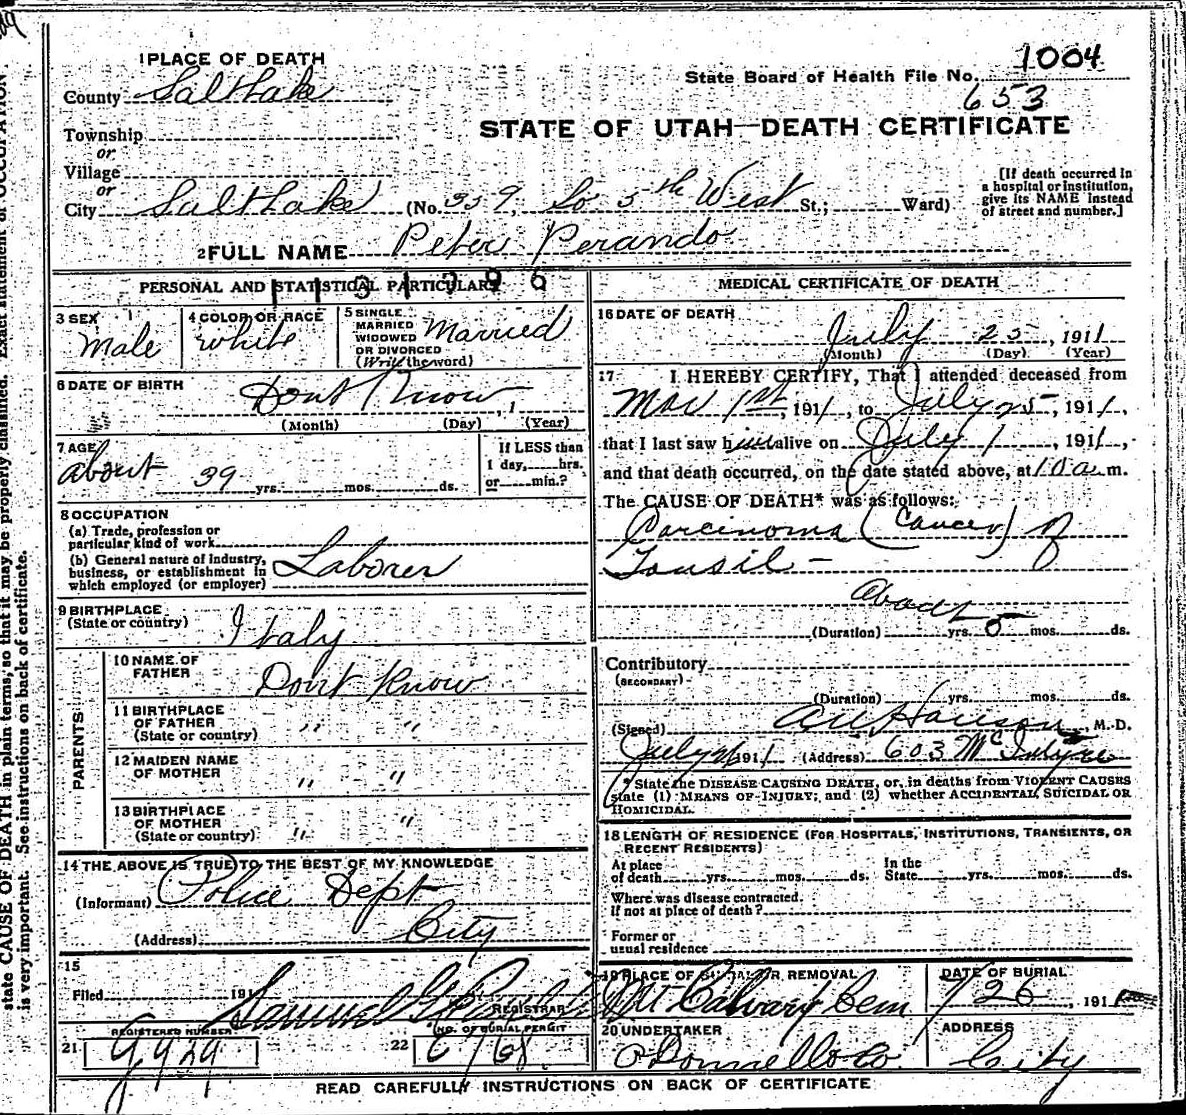 1 PLACE OF DEATH
1004
State Board of Health File No.
653
County Salt Lake
STATE OF UTAH—DEATH CERTIFICATE
Township
or
Village
or
City Salt Lake (No. 339, So. 5th West St.; Ward)
[If death occurred in a hospital or institution, give its NAME instead of street and number.]
2 FULL NAME Peter Perando
PERSONAL AND STATISTICAL PARTICULARS
3 SEX Male
4 COLOR OR RACE White
5 SINGLE MARRIED WIDOWED OR DIVORCED (Write the word) Married
6 DATE OF BIRTH Dont Know, 1
(Month) (Day) (Year)
7 AGE about 39 yrs. mos. ds.
If LESS than 1 day, hrs. or min.?
8 OCCUPATION
(a) Trade, profession or particular kind of work
(b) General nature of industry, business, or establishment in which employed (or employer) Laborer
9 BIRTHPLACE (State or country) Italy
PARENTS
10 NAME OF FATHER Dont Know
11 BIRTHPLACE OF FATHER (State or country) " "
12 MAIDEN NAME OF MOTHER " "
13 BIRTHPLACE OF MOTHER (State or country) " "
14 THE ABOVE IS TRUE TO THE BEST OF MY KNOWLEDGE
(Informant) Police Dept
(Address) City
15
Filed 191 Samuel G. REGISTRAR
REGISTERED NUMBER
21 g 929
NO. OF BURIAL PERMIT
22
MEDICAL CERTIFICATE OF DEATH
16 DATE OF DEATH
July 25, 1911
(Month) (Day) (Year)
17 I HEREBY CERTIFY, That I attended deceased from
Mar 1st, 1911, to July 25, 1911,
that I last saw him alive on July 1, 1911,
and that death occurred, on the date stated above, at 10 a.m.
The CAUSE OF DEATH* was as follows:
Carcinoma (Cancer) of
Tonsil —
About
(Duration) yrs. 5 mos. ds.
Contributory
(SECONDARY)
(Duration) yrs. mos. ds.
(Signed) Hanson, M.D.
July 1911 (Address) 603 McIntyre
*State the DISEASE CAUSING DEATH, or, in deaths from VIOLENT CAUSES
state (1) MEANS OF INJURY; and (2) whether ACCIDENTAL, SUICIDAL OR
HOMICIDAL.
18 LENGTH OF RESIDENCE (FOR HOSPITALS, INSTITUTIONS, TRANSIENTS, OR
RECENT RESIDENTS)
At place of death yrs. mos. ds. In the State yrs. mos. ds.
Where was disease contracted.
if not at place of death?
Former or
usual residence
19 PLACE OF BURIAL OR REMOVAL Mt Calvary Cem
DATE OF BURIAL 7/26, 191
20 UNDERTAKER O'Donnell & Co.
ADDRESS City
READ CAREFULLY INSTRUCTIONS ON BACK OF CERTIFICATE
state CAUSE OF DEATH in plain terms, so that it may be properly classified. Exact statement of OCCUPATION
is very important. See instructions on back of certificate.